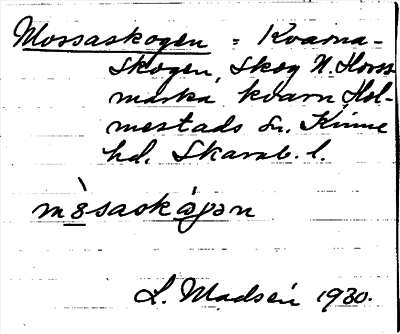 Mossaskogen = Kvarna-
skogen, Skog N. Horss-
marka kvarn, Hol-
mestads sn. Kinne
hd. Skarab. l.
L. Madsén 1930.